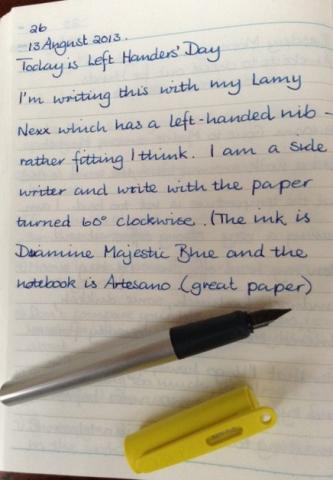 26
13 August 2013.
Today is Left Handers' Day
I'm writing this with my Lamy
Nexx which has a left-handed nib -
rather fitting I think. I am a side
writer and write with the paper
turned 60° clockwise. (The ink is
Diamine Majestic Blue and the
notebook is Artesano (great paper)